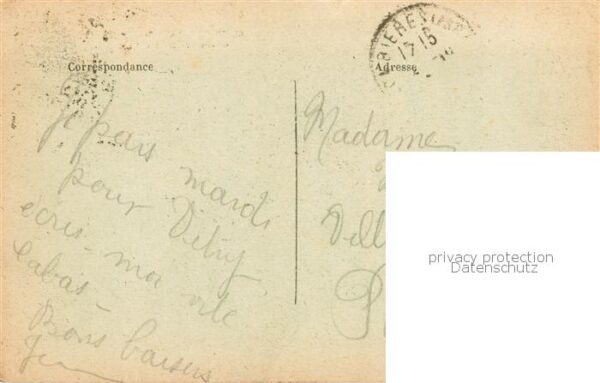 Correspondance
Adresse
17 15
Je pars mardi
pour Vitry
écris-moi vite
labas -
Bons baisers
Madame
Vill
P
privacy protection
Datenschutz